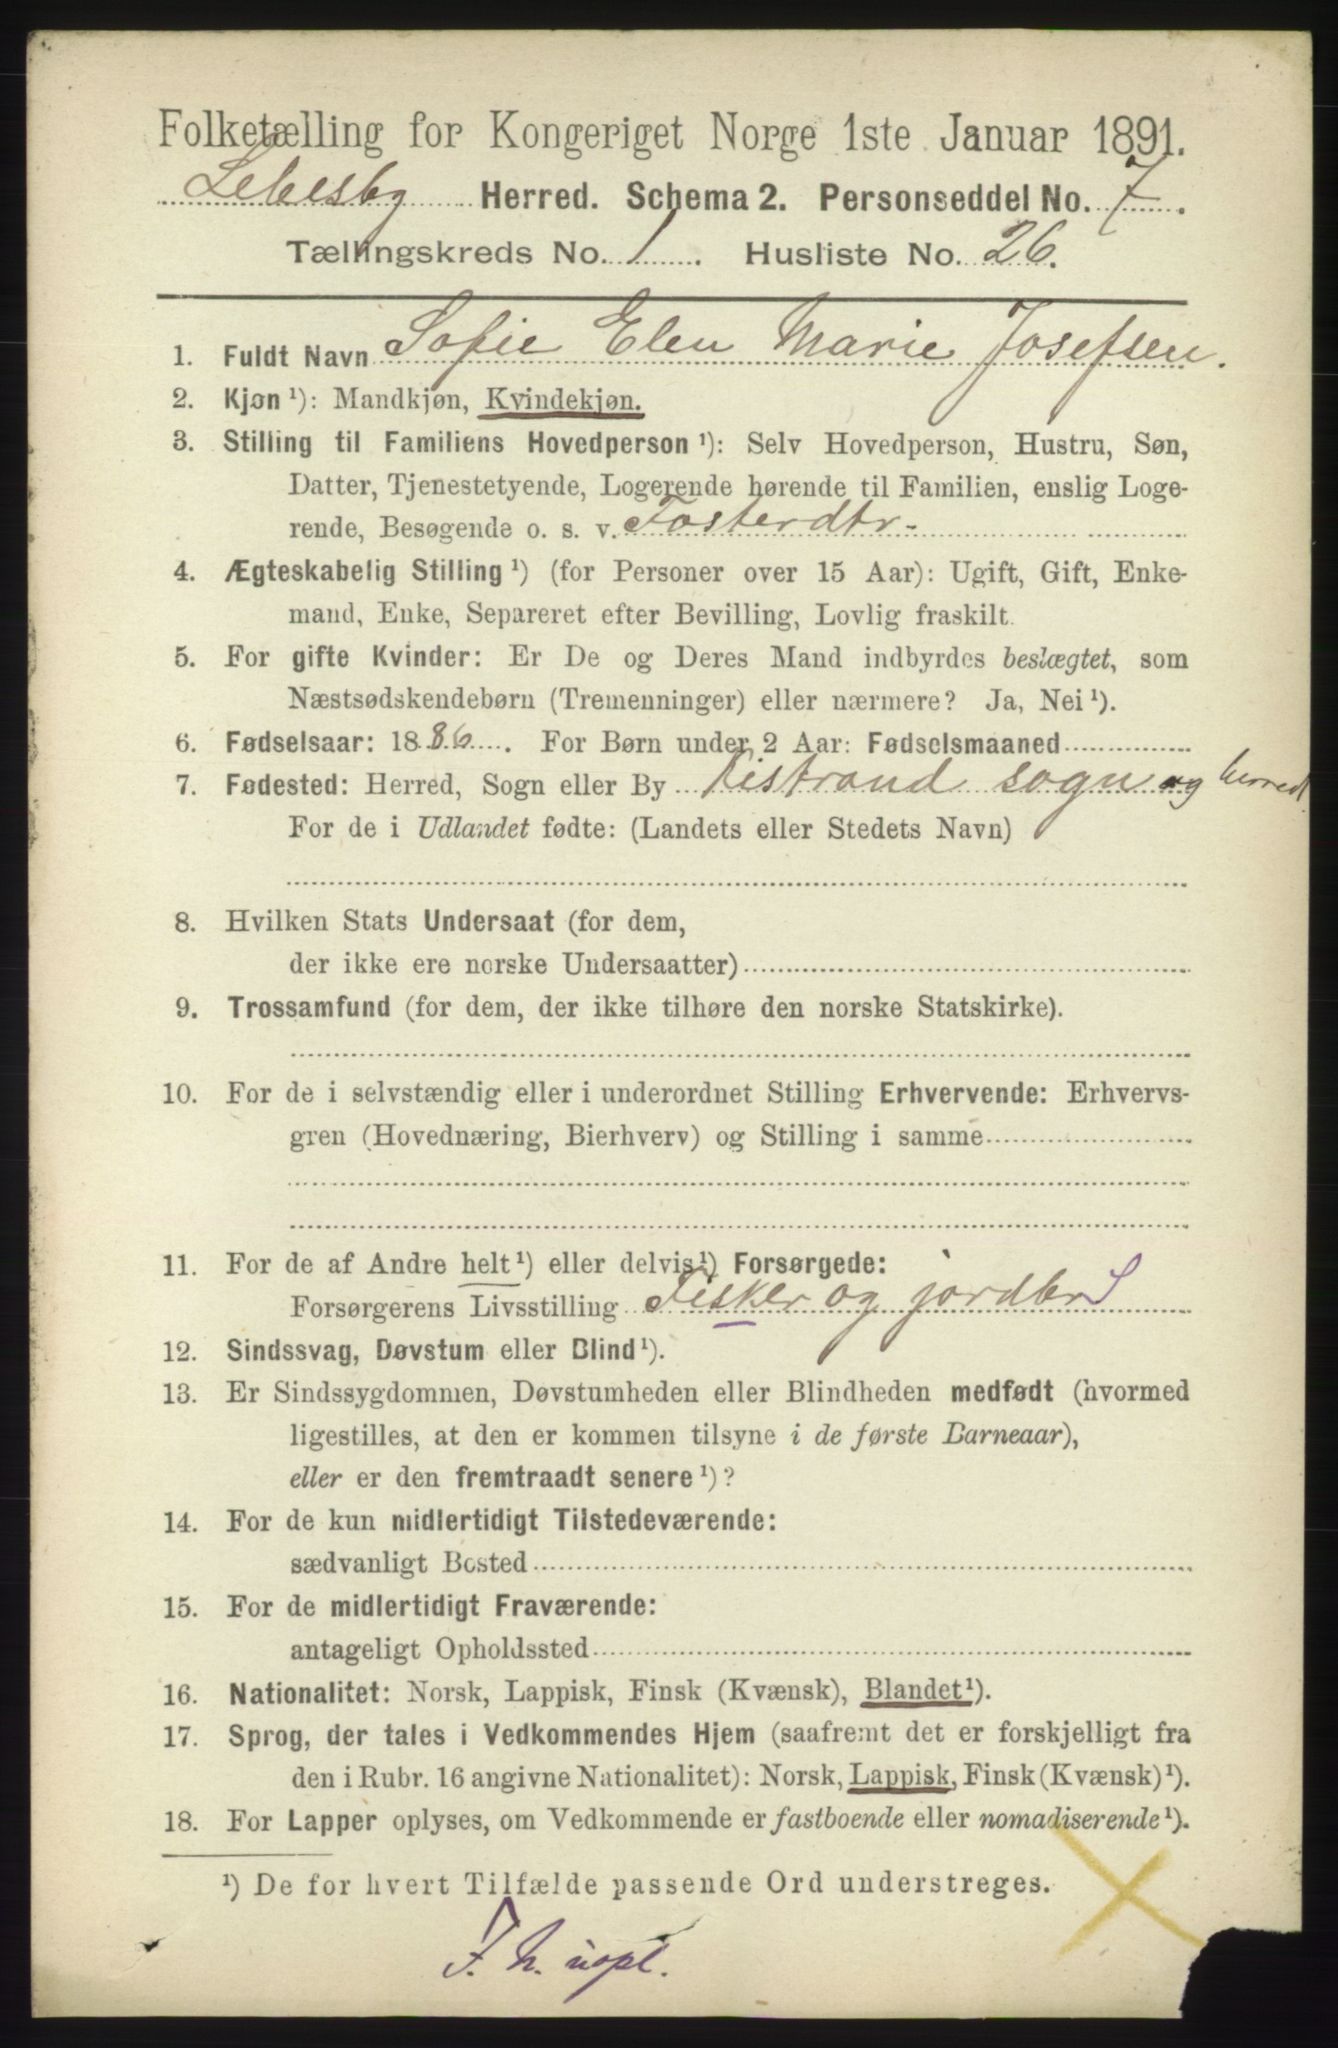 Folketælling for Kongeriget Norge 1ste Januar 1891.
Lebesby Herred. Schema 2. Personseddel No. 7.
Tællingskreds No. 1. Husliste No. 26.
1. Fuldt Navn Sofie Elen Marie Josefsen.
2. Kjøn ¹): Mandkjøn, Kvindekjøn.
3. Stilling til Familiens Hovedperson ¹): Selv Hovedperson, Hustru, Søn,
Datter, Tjenestetyende, Logerende hørende til Familien, enslig Loge-
rende, Besøgende o. s. v. Fosterdtr.
4. Ægteskabelig Stilling ¹) (for Personer over 15 Aar): Ugift, Gift, Enke-
mand, Enke, Separeret efter Bevilling, Lovlig fraskilt.
5. For gifte Kvinder: Er De og Deres Mand indbyrdes beslægtet, som
Næstsødskendebørn (Tremenninger) eller nærmere? Ja, Nei ¹).
6. Fødselsaar: 1886. For Børn under 2 Aar: Fødselsmaaned
7. Fødested: Herred, Sogn eller By Kistrand sogn og herred.
For de i Udlandet fødte: (Landets eller Stedets Navn)
8. Hvilken Stats Undersaat (for dem,
der ikke ere norske Undersaatter)
9. Trossamfund (for dem, der ikke tilhøre den norske Statskirke).
10. For de i selvstændig eller i underordnet Stilling Erhvervende: Erhvervs-
gren (Hovednæring, Bierhverv) og Stilling i samme
11. For de af Andre helt ¹) eller delvis ¹) Forsørgede:
Forsørgerens Livsstilling Fisker og jordbr S
12. Sindssvag, Døvstum eller Blind ¹).
13. Er Sindssygdommen, Døvstumheden eller Blindheden medfødt (hvormed
ligestilles, at den er kommen tilsyne i de første Barneaar),
eller er den fremtraadt senere ¹)?
14. For de kun midlertidigt Tilstedeværende:
sædvanligt Bosted
15. For de midlertidigt Fraværende:
antageligt Opholdssted
16. Nationalitet: Norsk, Lappisk, Finsk (Kvænsk), Blandet ¹).
17. Sprog, der tales i Vedkommendes Hjem (saafremt det er forskjelligt fra
den i Rubr. 16 angivne Nationalitet): Norsk, Lappisk, Finsk (Kvænsk) ¹).
18. For Lapper oplyses, om Vedkommende er fastboende eller nomadiserende ¹).
¹) De for hvert Tilfælde passende Ord understreges.
F. N. uopl.